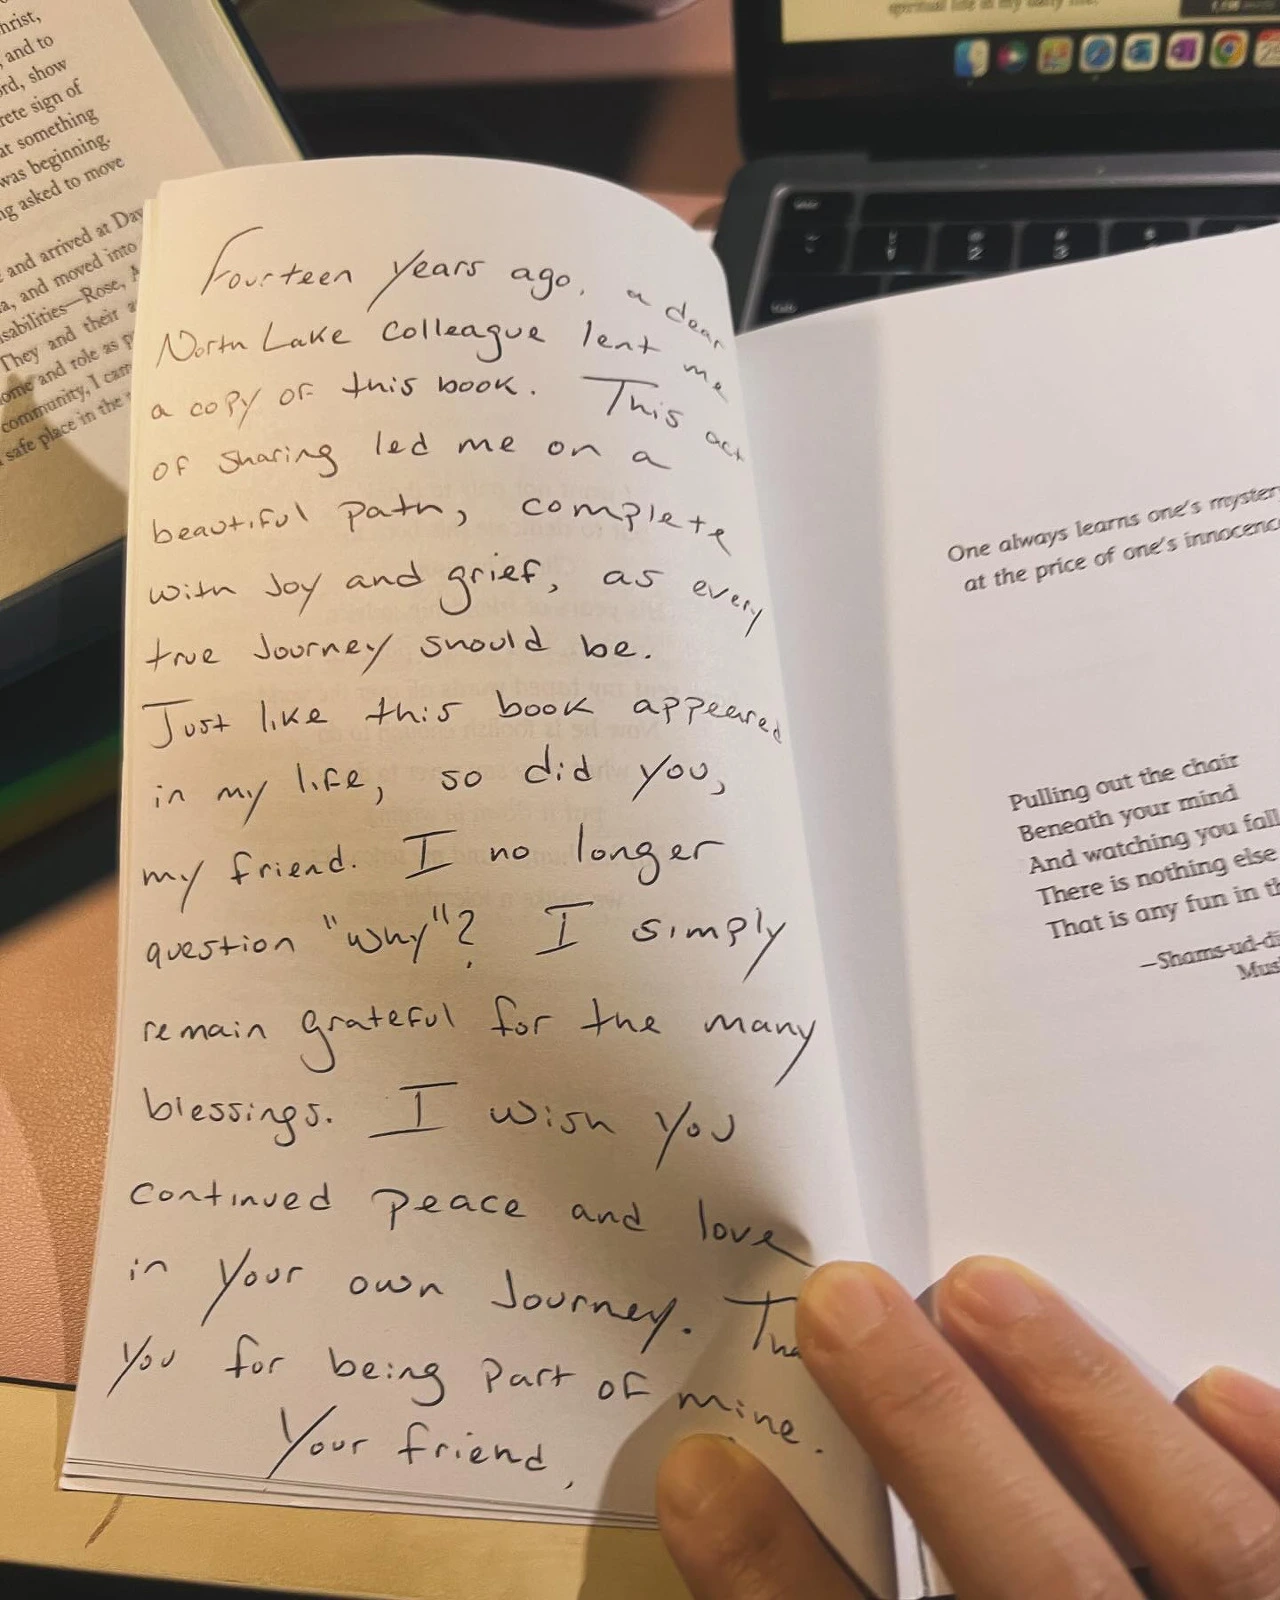 Christ,
, and to
ord, show
rete sign of
at something
was beginning.
ng asked to move
and arrived at Day
a, and moved into
isabilities—Rose, A
They and their a
ome and role as p
community, I cam
safe place in the
spiritual life in my daily life.
2
3
Fourteen years ago, a dear
North Lake colleague lent me
a copy of this book. This act
of sharing led me on a
beautiful path, complete
with joy and grief, as every
true Journey should be.
Just like this book appeared
in my life, so did you,
my friend. I no longer
question "why"? I simply
remain grateful for the many
blessings. I wish you
continued peace and love
in your own Journey. Tha
you for being part of mine.
Your friend,
One always learns one's myster
at the price of one's innocence
Pulling out the chair
Beneath your mind
And watching you fall
There is nothing else
That is any fun in th
—Shams-ud-di
Mus